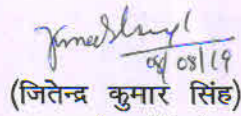 08/08/19
(जितेन्द्र कुमार सिंह)